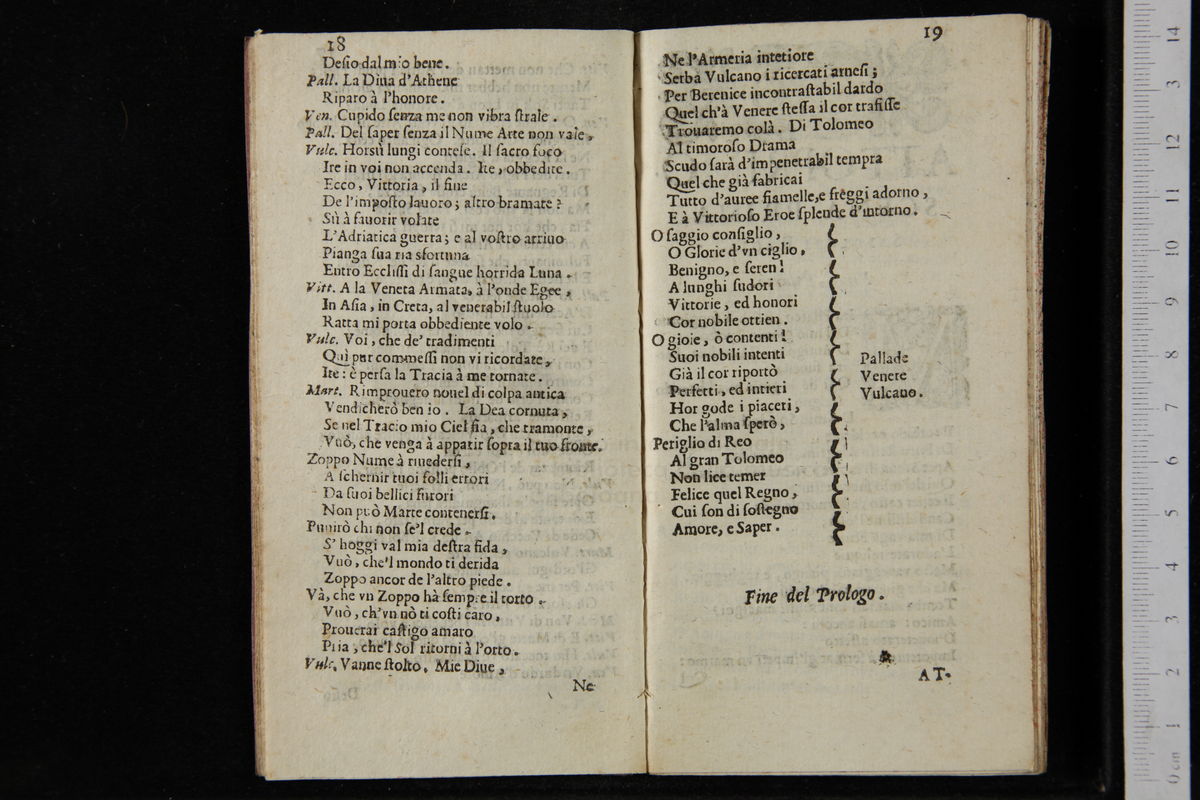 18
Desio dal mio bene.
Pall. La Diua d'Athene
Riparo à l'honore.
Ven. Cupido senza me non vibra strale.
Pall. Del saper senza il Nume Arte non vale,
Vulc. Horsù lungi contese. Il sacro foco
Ire in voi non accenda. Ite, obbedite.
Ecco, Vittoria, il fine
De l'imposto lauoro; altro bramate?
Sù à fauorir volate
L'Adriatica guerra; e al vostro arriuo
Pianga sua ria sfortuna
Entro Ecclissi di sangue horrida Luna.
Vitt. A la Veneta Armata, à l'onde Egee,
In Asia, in Creta, al venerabil stuolo
Ratta mi porta obbediente volo.
Vulc. Voi, che de' tradimenti
Quì pur commessi non vi ricordate,
Ite: è persa la Tracia à me tornate.
Mart. Rimprouero nouel di colpa antica
Vendicherò ben io. La Dea cornuta,
Se nel Tracio mio Ciel fia, che tramonte,
Vuò, che venga à apparir sopra il tuo fronte.
Zoppo Nume à riuedersi,
A schernir tuoi folli errori
Da suoi bellici furori
Non può Marte contenersi.
Punirò chi non se'l crede.
S' hoggi val mia destra fida,
Vuò, che'l mondo ti derida
Zoppo ancor de l'altro piede.
Và, che vn Zoppo hà sempre il torto.
Vuò, ch'vn nò ti costi caro,
Prouerai castigo amaro
Pria, che'l Sol ritorni à l'orto.
Vulc. Vanne stolto. Mie Diue,
Ne
19
Ne l'Armeria intetiore
Serba Vulcano i ricercati arnesi;
Per Berenice incontrastabil dardo
Quel ch'à Venere stessa il cor trafisse
Trouaremo colà. Di Tolomeo
Al timoroso Drama
Scudo sarà d'impenetrabil tempra
Quel che già fabricai
Tutto d'auree fiamelle, e freggi adorno,
E à Vittorioso Eroe splende d'intorno.
O saggio consiglio,
O Glorie d'vn ciglio,
Benigno, e seren!
A lunghi sudori
Vittorie, ed honori
Cor nobile ottien.
O gioie, ò contenti!
Suoi nobili intenti
Già il cor riportò
Perfetti, ed intieri
Hor gode i piaceri,
Che l'alma sperò,
Periglio di Reo
Al gran Tolomeo
Non lice temer
Felice quel Regno,
Cui son di sostegno
Amore, e Saper.
Pallade
Venere
Vulcano.
Fine del Prologo.
AT-